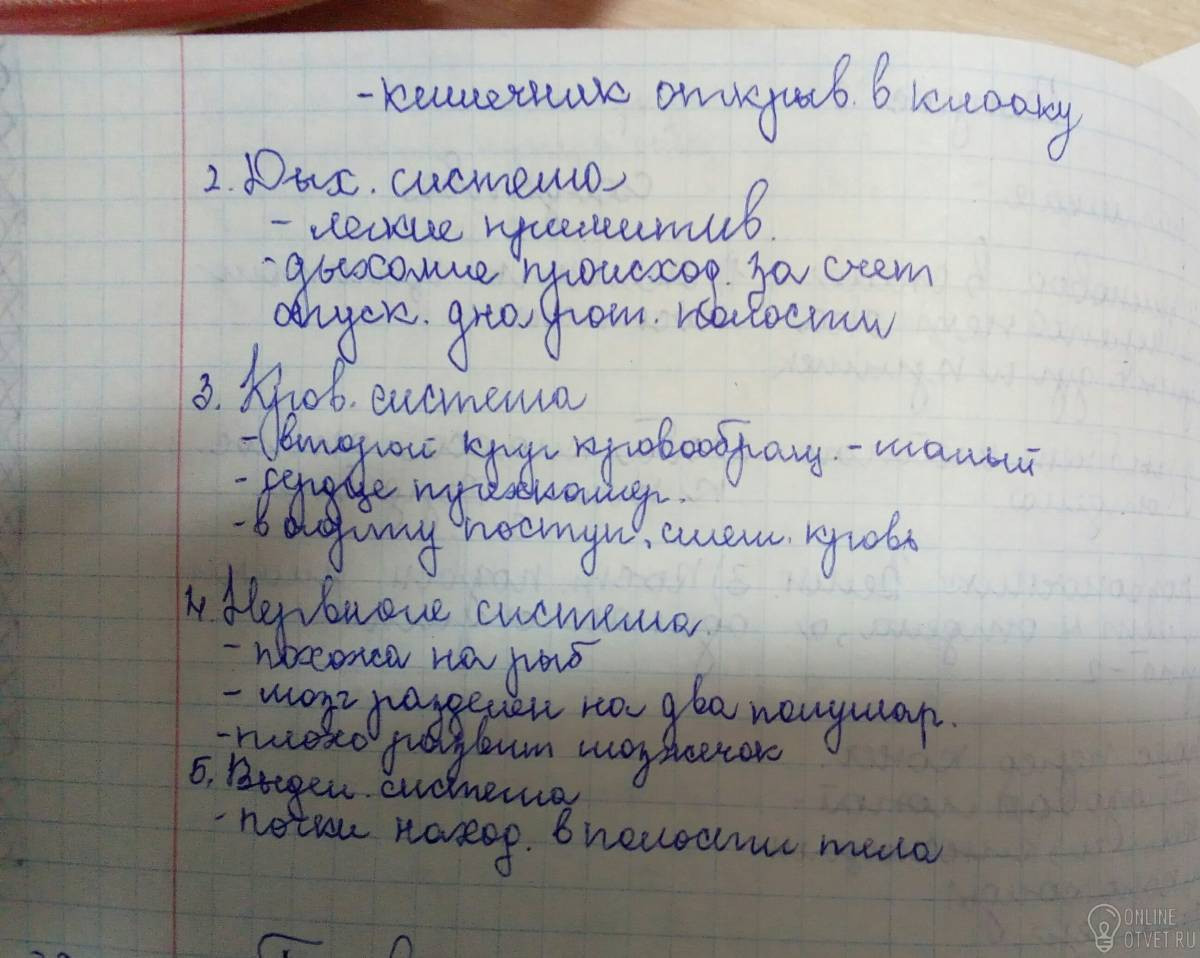 -кишечник открыв. в клоаку
2. Дых. система
- легкие примитив.
-дыхание происход. за счет
опуск. дна рот. полости
3. Кров. система
- второй круг кровообращ. - малый
- сердце трехкамер.
- в аорту поступ. смеш. кровь
4. Нервная система
- похожа на рыб
- мозг разделен на два полушар.
- плохо развит мозжечок
5. Выдел. система
- почки наход. в полости тела
ONLINE
OTVET.RU